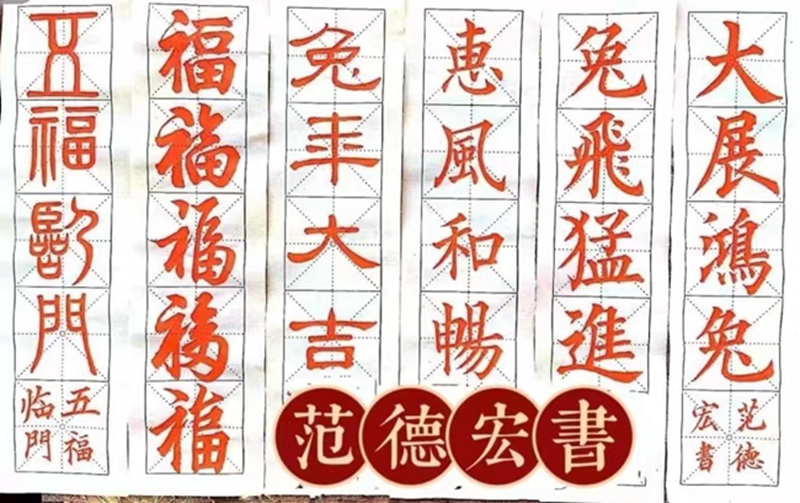 大展鴻兔
范德
宏書
兔飛猛進
恵風和暢
兔年大吉
福福福福福
五福臨門
五福
临門
范德宏書